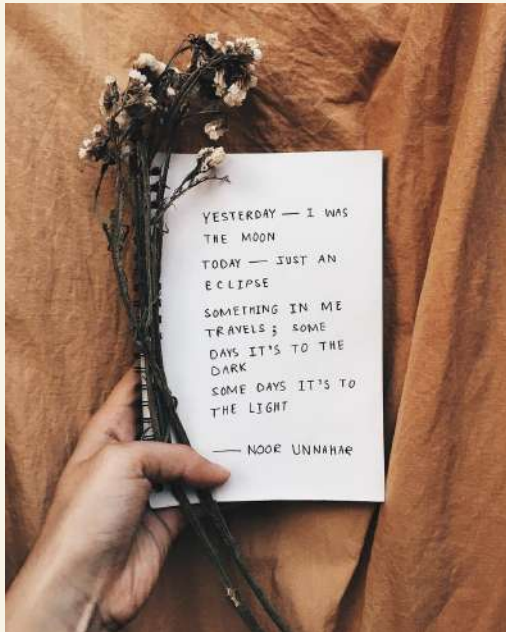 YESTERDAY — I WAS
THE MOON
TODAY — JUST AN
ECLIPSE
SOMETHING IN ME
TRAVELS ; SOME
DAYS IT'S TO THE
DARK
SOME DAYS IT'S TO
THE LIGHT
— NOOR UNNAHAR